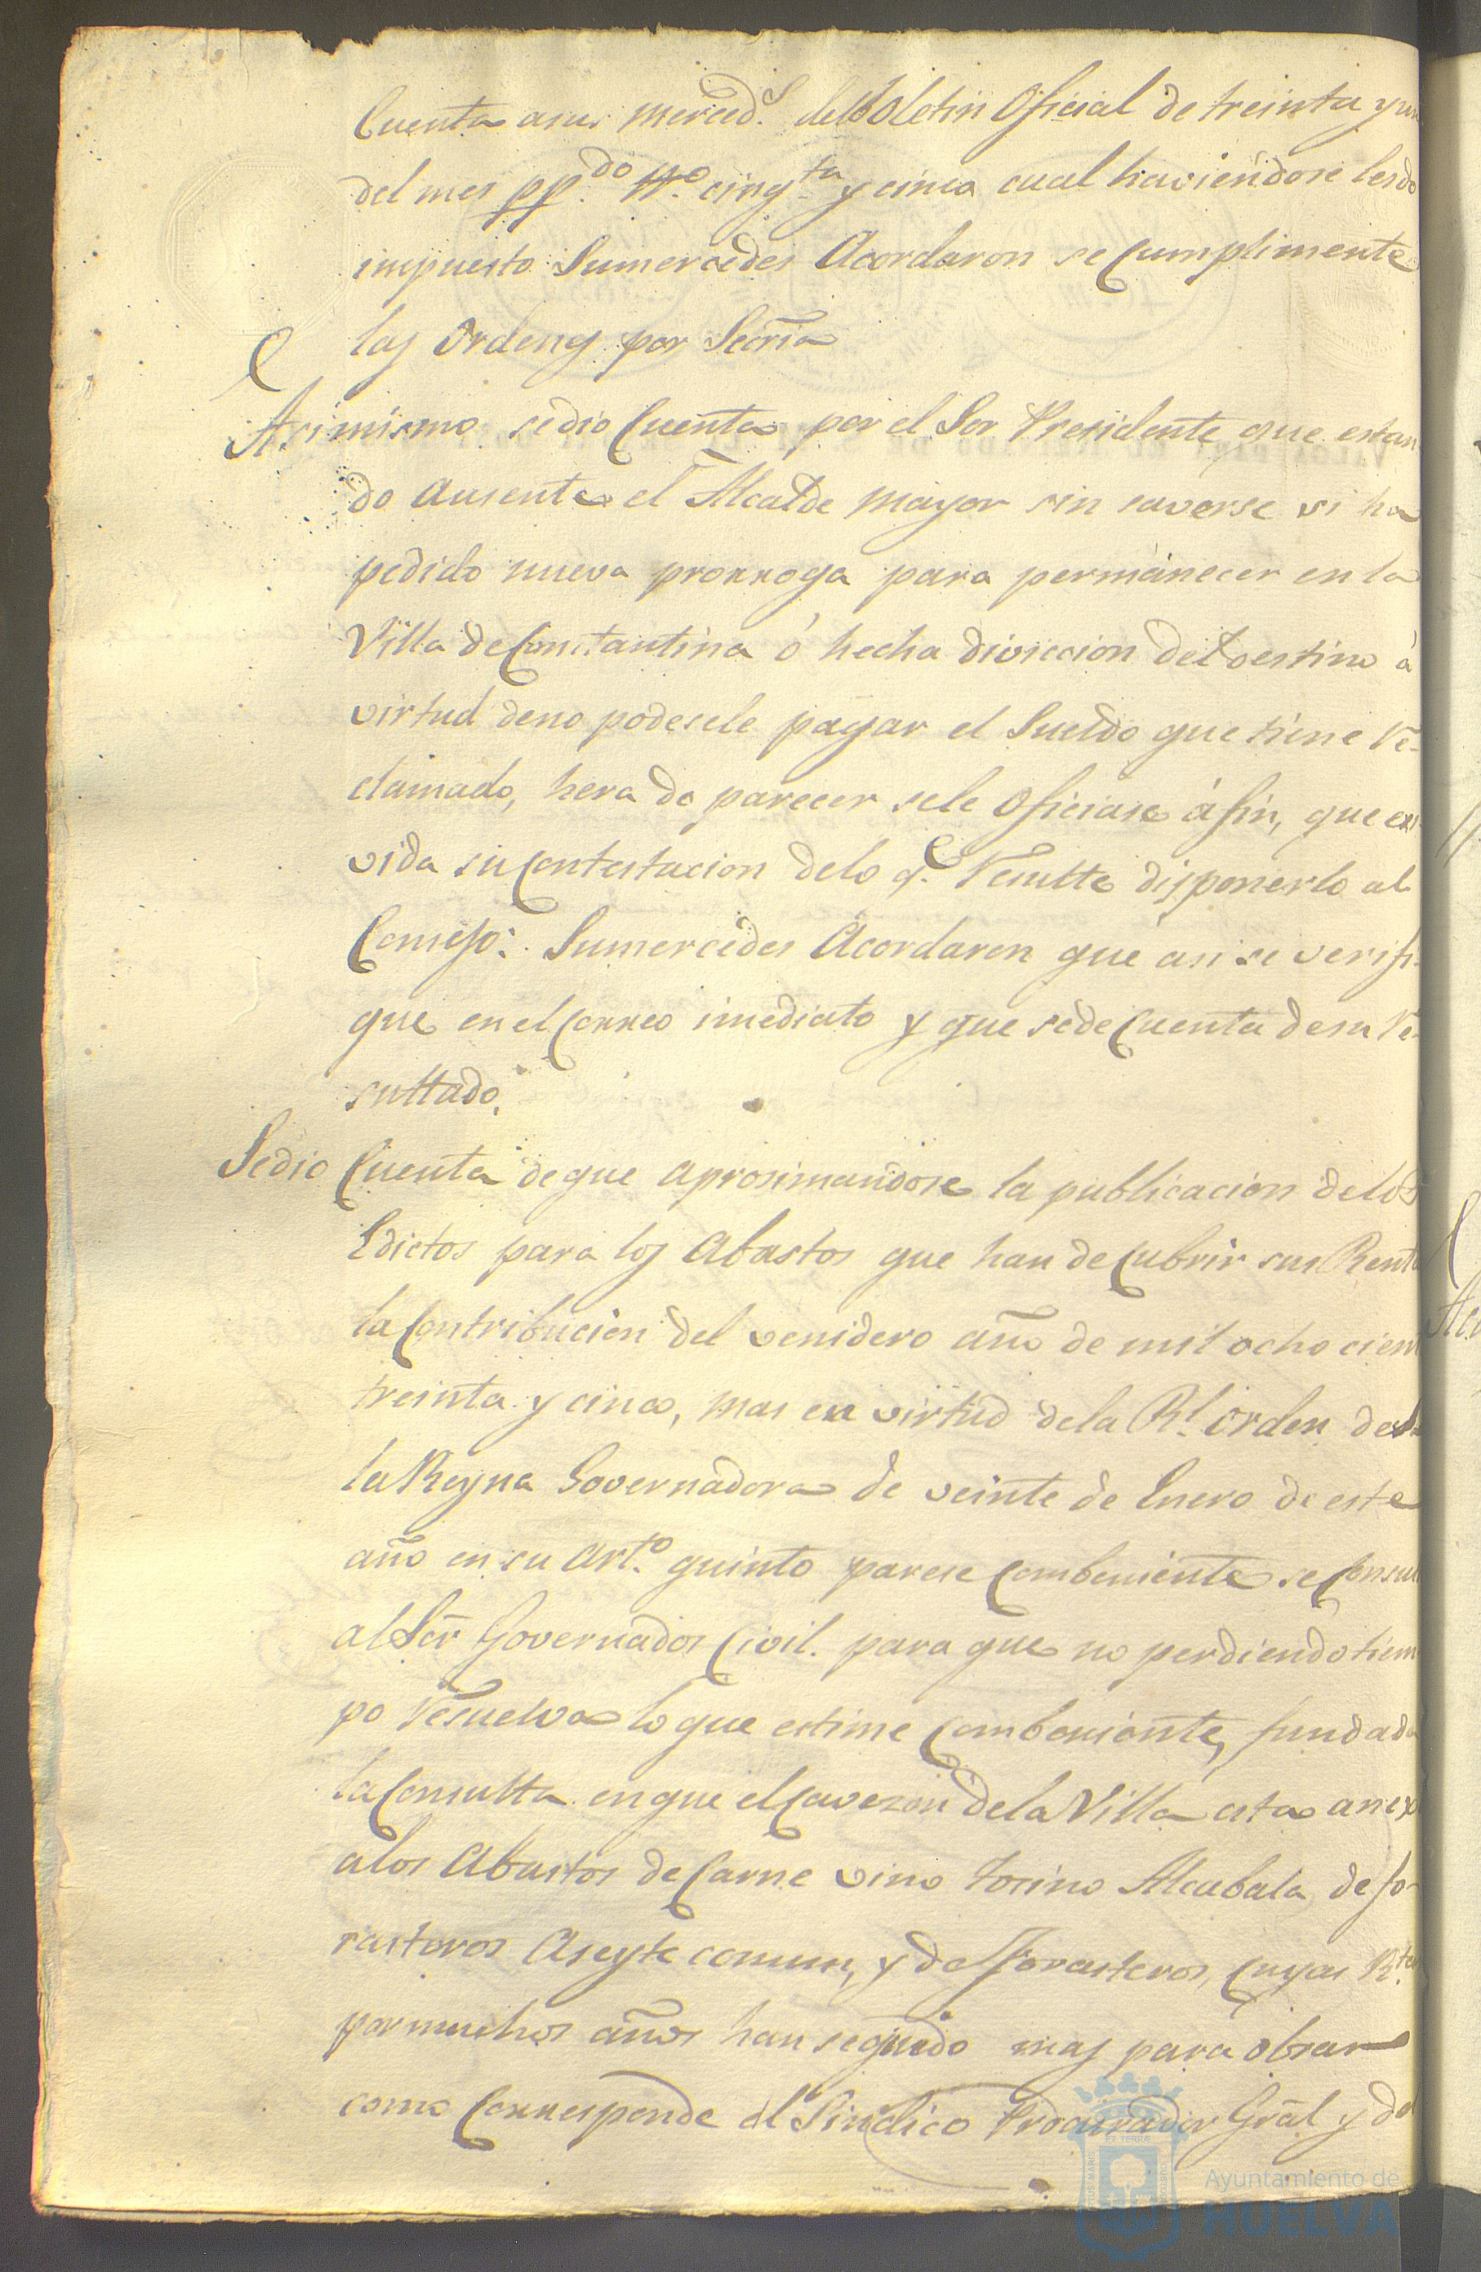 Cuenta a sus merced.s del Boletin Oficial de treinta y un
del mes pp.do N.o cinq.ta y cinco cual haviendose leido
impuesto Sumercedes Acordaron se Cumplimente
las Ordenes por Secria
Asimismo se dio Cuenta por el Sor Presidente que estan
do Ausente el Alcalde mayor sin saverse si ha
pedido nueva prorroga para permanecer en la
Villa de Constantina ó hecha divicion del destino á
virtud de no podesele pagar el Sueldo que tiene re-
clamado, hera de parecer sele Oficiase á fin, que en
vida su Contestacion delo q.e Resulte disponerlo al
Consejo: Sumercedes Acordaron que asi se verifi-
que en el Correo imediato y que sede Cuenta de su Re-
sultado.
Sedio Cuenta de que Aprosimandose la publicacion delos
Edictos para los Abastos que han de Cubrir sus Rent
la Contribucion del venidero año de mil ocho cient
treinta y cinco, mas en virtud dela Rl. Orden de
la Reyna Governadora de veinte de Enero de este
año en su Art.o quinto parese Combeniente se Consul
al Sor Governador Civil para que no perdiendo tiem
po Resuelva lo que estime Combeniente, fundada
la Consulta en que el Cavezon dela Villa esta anexo
alos Abastos de Carne vino tosino Alcabala de fo-
rasteros Aseyte comun, y de forasteros, Cuyas R.tas
por muchos años han seguido mas para obrar
como Corresponde el Sindico Procurador Gral y del
Ayuntamiento de
HUELVA